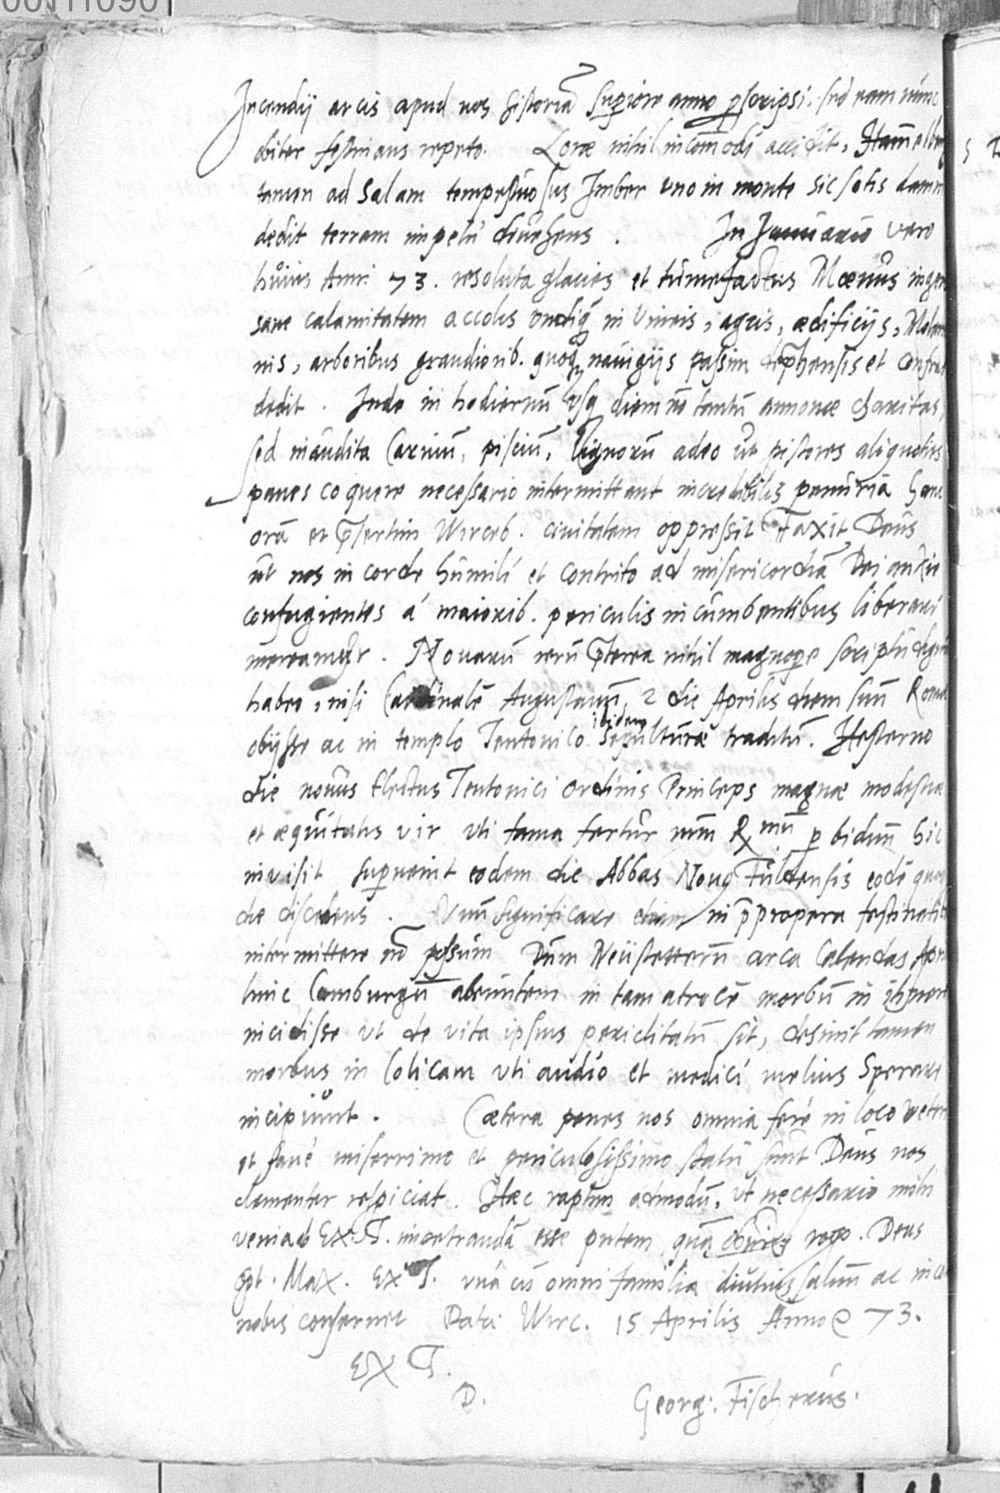 Incendij arcis apud vos historiã superiore anno perscripsi. sed eam nunc
obiter festinans repeto. Lorae nihil incõmodi accidit, Ham̃elb
tamen ad Salam tempestuosus Imber uno in monte sic satis
dedit terram impetu deuehens. In Januario vero
huius Anni 73. resoluta glacies et tumefactus Moenus
sane calamitatem accolis undiq in Vineis, agris, aedificijs,
nis, arboribus grandiorib. quoq nauigijs passim et
dedit. Inde in hodiernũ usq diem nõ tantũ annonae charitas,
sed inaudita Carniũ, pisciũ, Lignorũ adeo ut pistores aliquoties
panes coquere necessario intermittant incredibilis penuria hanc
orã et p̃sertim Wirceb. ciuitatem oppressit Faxit Deus
ut nos in corde humili et contrito ad misericordiã Dei
confugientes á maiorib. periculis incumbentibus liberari
mereamur. Nouarũ rerũ p̃terea nihil magnope scriptu
habeo, nisi Cardinalẽ Augustanũ, 2 die Aprilis diem suũ
obijsse ac in templo Teutonico ibidem Sepulturae traditũ. Hesterno
die nouus Electus Teutonici Ordinis Princeps magnae modestiae
et aequitatis vir uti fama fertur Rmũ p biduũ hic
inuisit superuenit eodem die Abbas Nouq Fuldensis eodẽ
die discedens. Significare etiam in p̃propera
intermittere nõ possum Dum Neustetterũ circa Calendas
hinc Comburgũ abeuntem in tam atrocẽ morbũ in
incidisse ut de vita ipsius periclitatũ sit, desinit tamen
morbus in Colicam uti audio et medici melius Sperare
incipiunt. Caetera penes nos omnia ferè in loco
et sanè miserrimo et periculosissimo statu sunt Deus nos
clementer respiciat. Haec raptim admodũ, ut necessario mihi
veniã ab Ex T. impetrandã esse putem, quã rogo. Deus
Opt. Max. Ex T. unà cũ omni familia diutius saluũ ac
nobis conseruet Data Wirc. 15 Aprilis Anno 73.
Ex T.
D.
Georg: Fischerus.